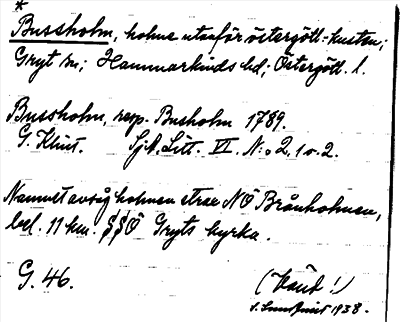 *
Bussholm, holme utanför östergötl.-kusten;
Gryt sn; Hammarkinds hd; Östergötl. l.
Bussholm, resp. Busholm 1789.
G. Klint. Sjk. Litt. VI. N:o 2, 1 o. 2.
Namnet avsåg holmen strax NÖ Brånholmen,
bel. 11 km. SSÖ Gryts kyrka.
G. 46.
S. 1938.